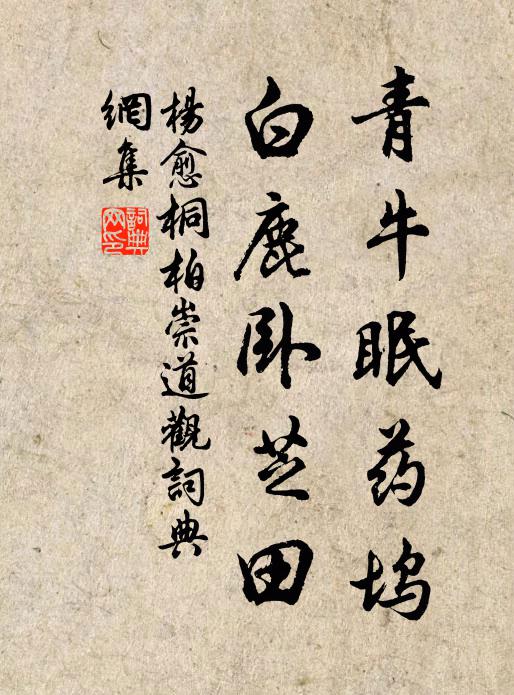 青牛眠药坞
白鹿卧芝田
楊愈桐柏崇道觀詞典
網集
詞典
网印